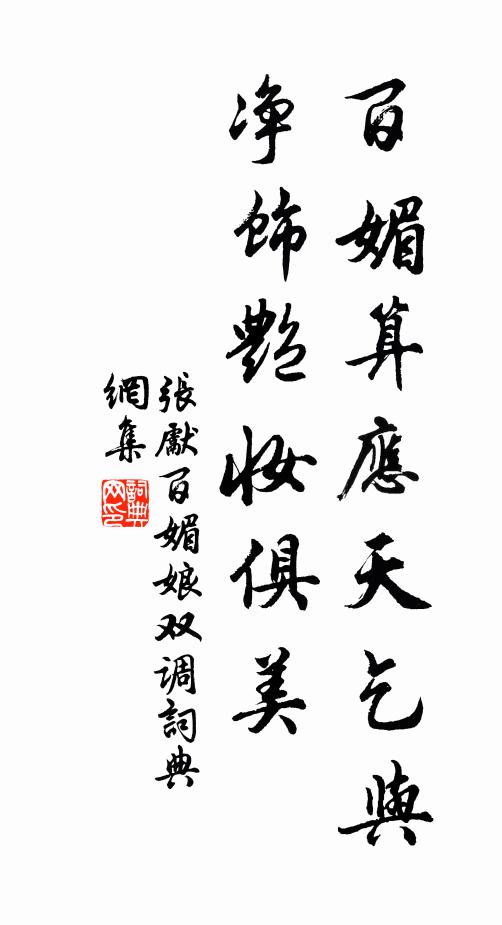 百媚算應天乞與
净飾艷妆俱美
張獻百媚娘双调詞典
網集
詞典
网印